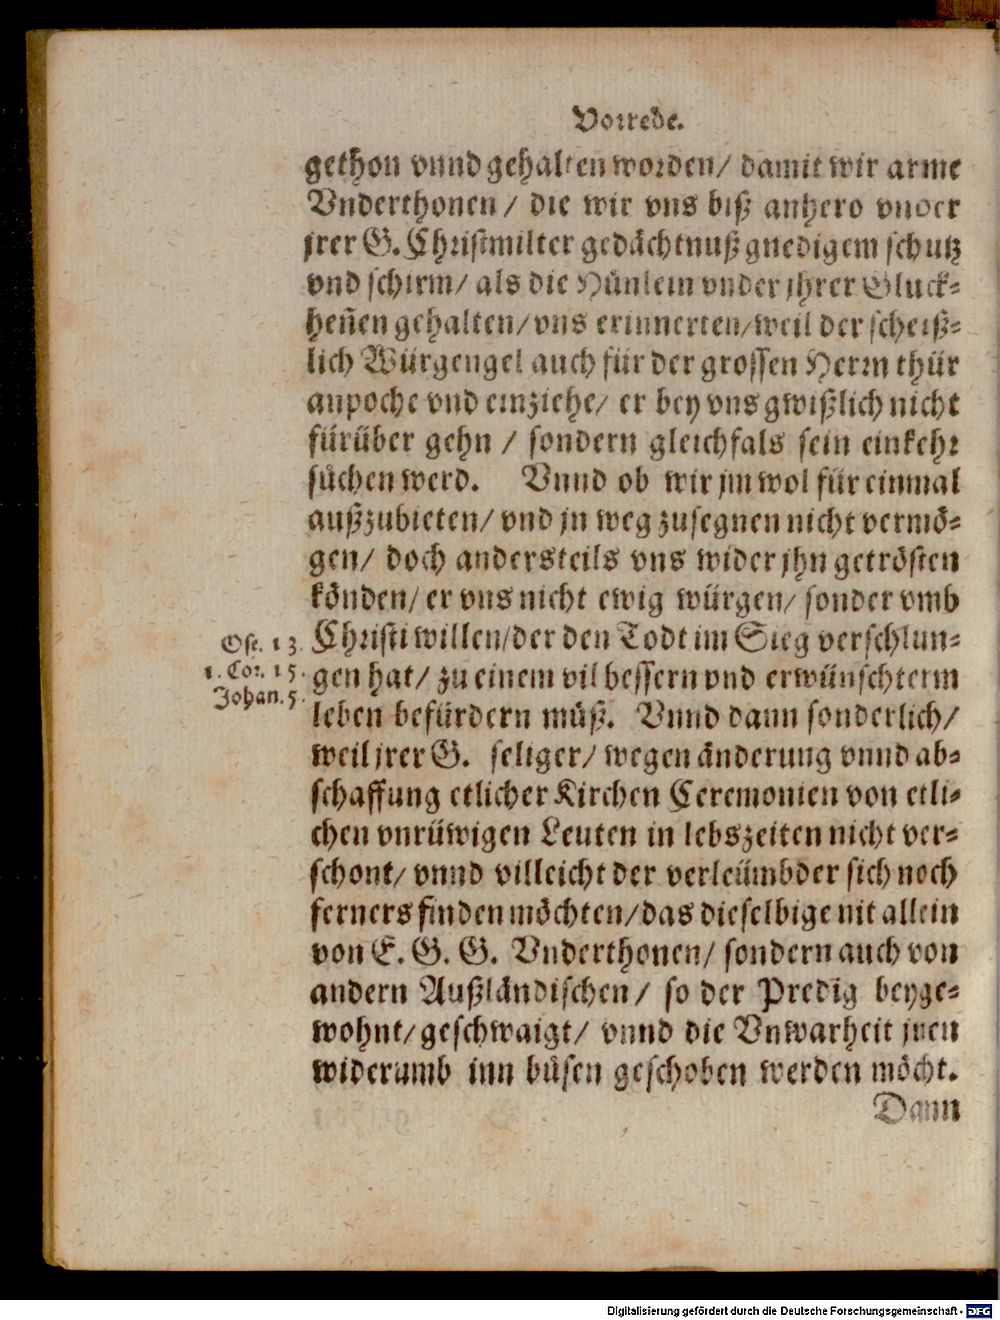 Vorrede.
gethon vnnd gehalten worden/ damit wir arme
Vnderthonen / die wir vns biß anhero vnder
jrer G. Christmilter gedächtnuß gnedigem schutz
vnd schirm/ als die Hünlein vnder jhrer Gluck-
heñen gehalten/ vns erinnerten/ weil der scheiß-
lich Würgengel auch für der grossen Herrn thür
anpoche vnd einziehe/ er bey vns gwißlich nicht
fürüber gehn / sondern gleichfals sein einkehr
sůchen werd. Vnnd ob wir jm wol für einmal
außzubieten/ vnd jn weg zusegnen nicht vermö-
gen/ doch andersteils vns wider jhn getrösten
könden/ er vns nicht ewig würgen/ sonder vmb
Christi willen/ der den Todt im Sieg verschlun-
gen hat/ zu einem vil bessern vnd erwünschterm
leben befürdern můß. Vnnd dann sonderlich/
weil jrer G. seliger/ wegen änderung vnnd ab-
schaffung etlicher Kirchen Ceremonien von etli-
chen vnrüwigen Leuten in lebszeiten nicht ver-
schont/ vnnd villeicht der verleümbder sich noch
ferners finden möchten/ das dieselbige nit allein
von E. G. G. Vnderthonen/ sondern auch von
andern Außländischen/ so der Predig beyge-
wohnt/ geschwaigt/ vnnd die Vnwarheit jnen
widerumb inn bůsen geschoben werden möcht.
Dann
Ose. 13.
1. Cor. 15.
Johan. 5.
Digitalisierung gefördert durch die Deutsche Forschungsgemeinschaft - DFG